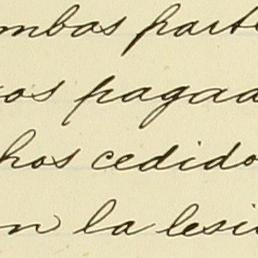 mbos parte
os pagad
hos cedido
n la lesi